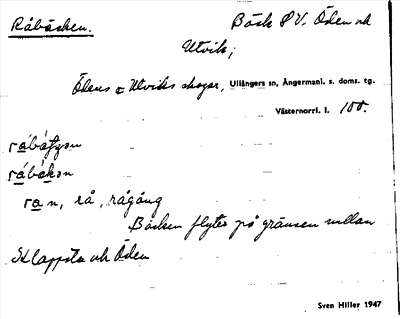 Råbäcken.
Bäck S V. Öden och
Utvik;
Ödens o Utviks skogar, Ullångers sn, Ångermanl. s. doms. tg.
Västernorrl. l. 100.
råbäkən
ra n, rå, rågång
Bäcken flyter på gränsen mellan
Klappsta och Öden
Sven Hiller 1947